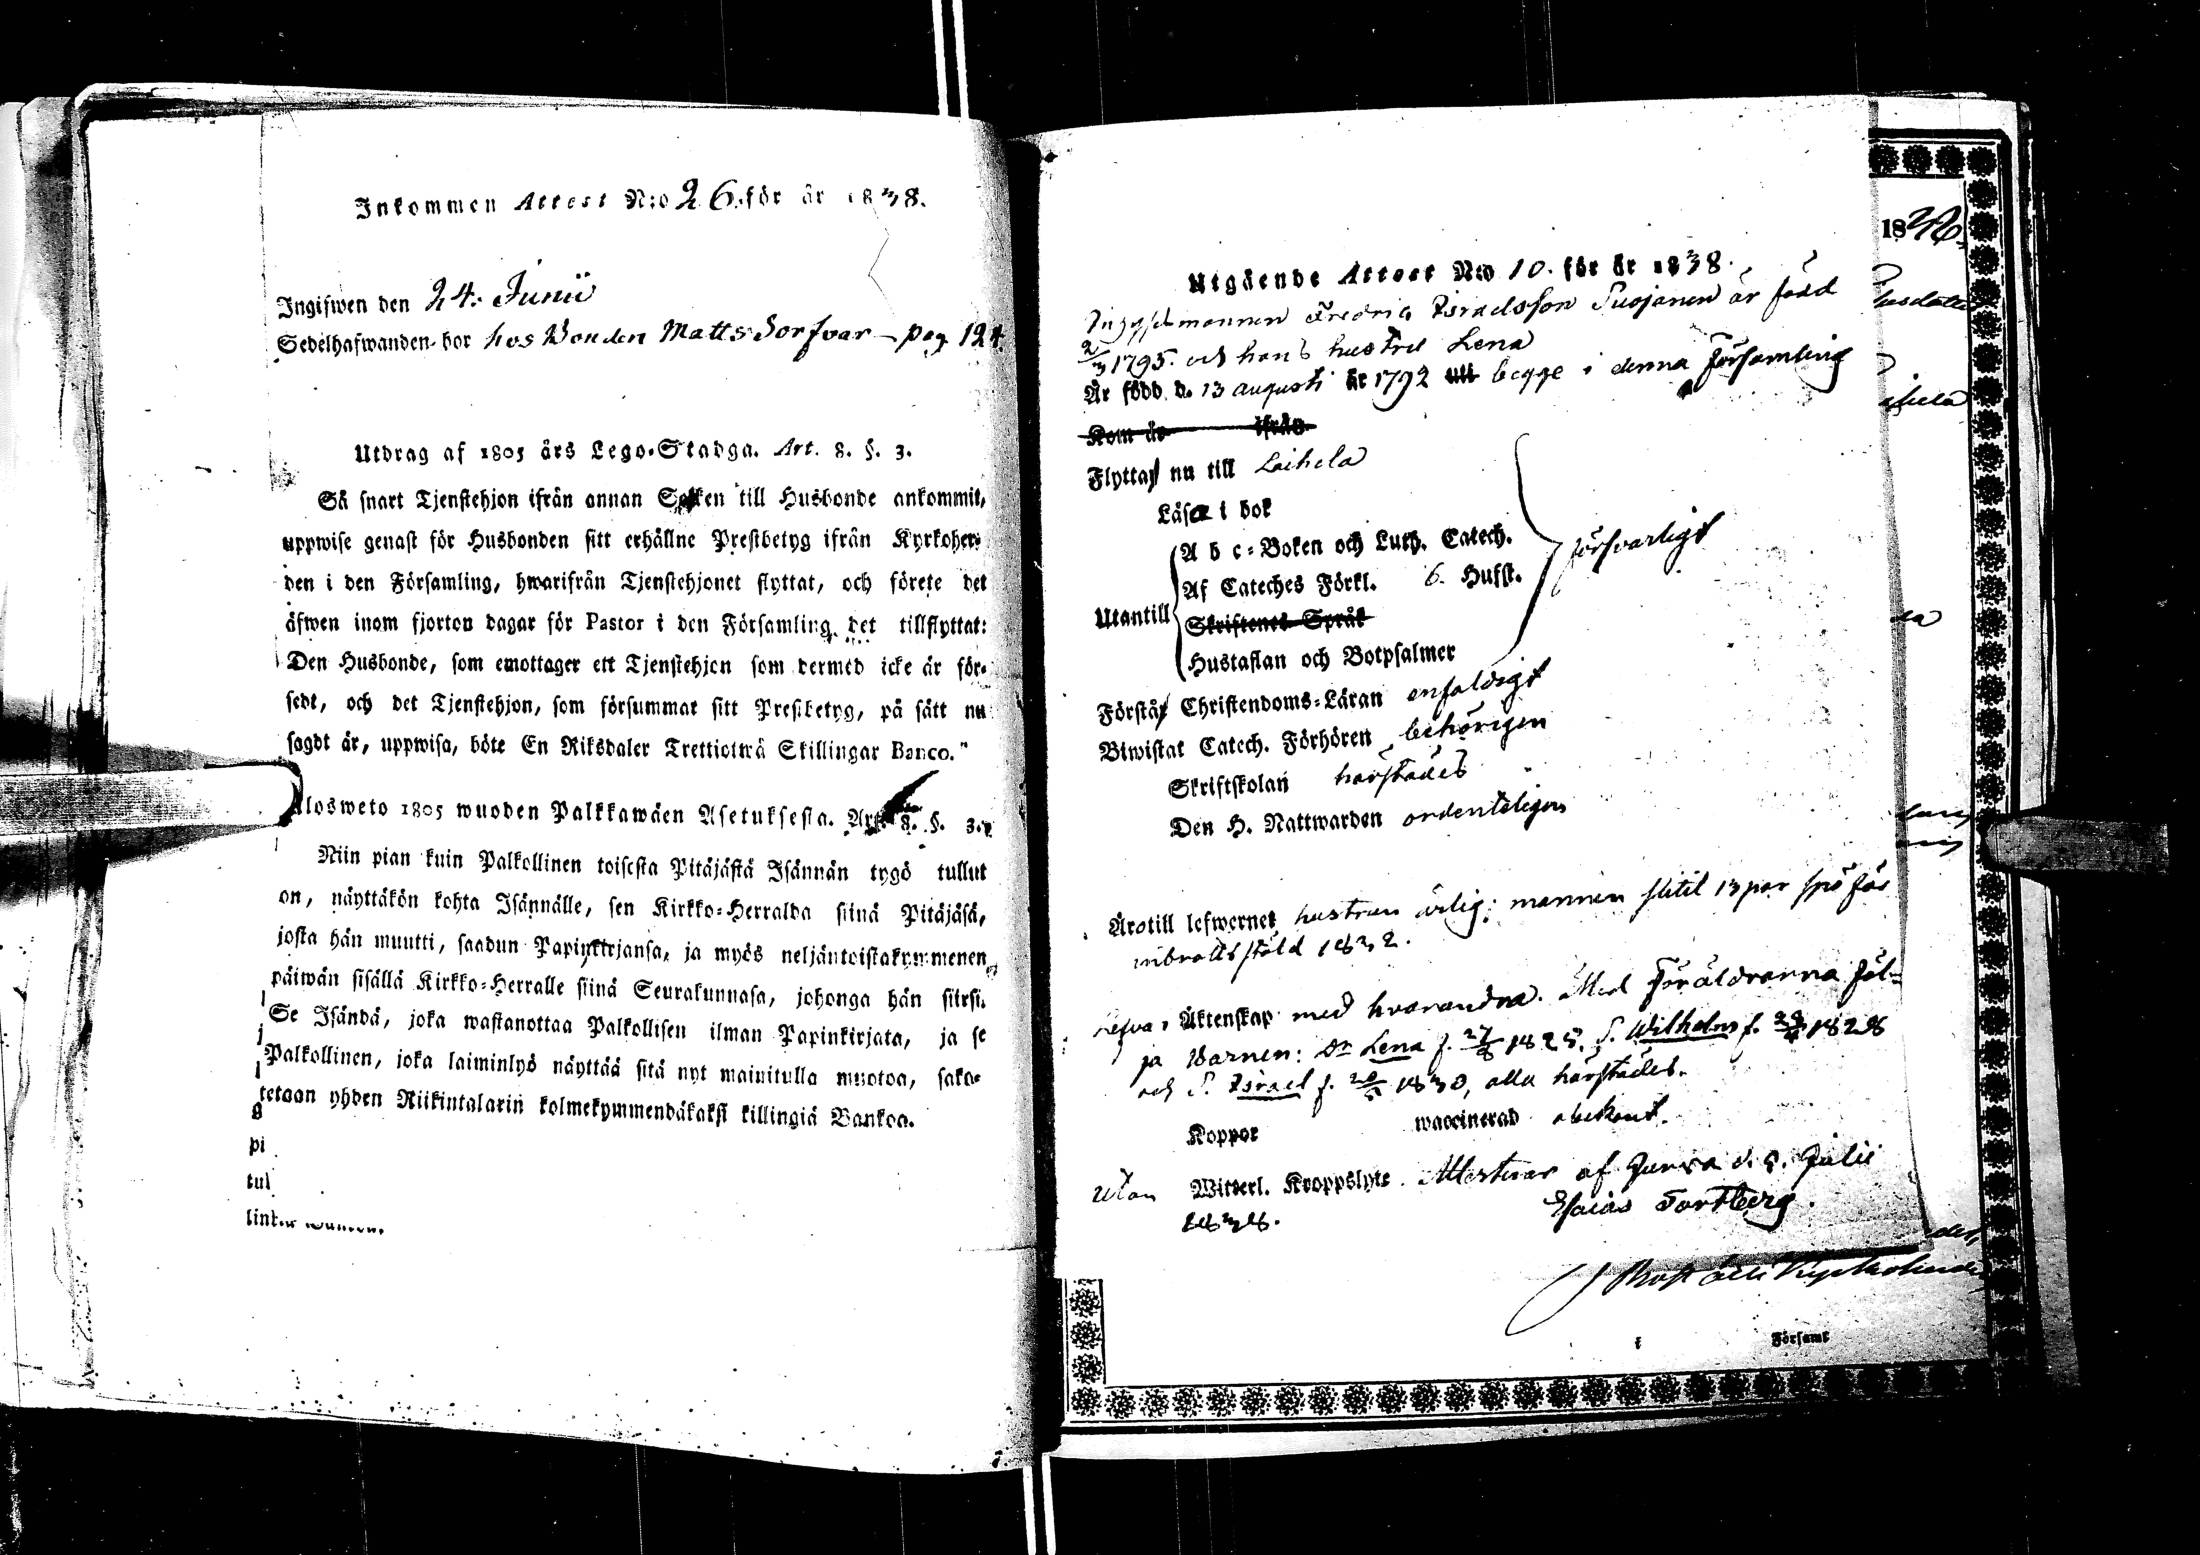 Inkommen Attest N:o 26. för år 1838.
Ingifwen den 24. Junii
Sedelhafwanden bor hos Bonden Matts Sorfvar - pag. 124.
Utdrag af 1805 års Lego-Stadga. Art. 8. §. 3.
Så snart Tjenstehjon ifrån annan Socken till Husbonde ankommit,
uppwise genast för Husbonden sitt erhållne Prestbetyg ifrån Kyrkoher-
den i den Församling, hwarifrån Tjenstehjonet flyttat, och förete det
äfwen inom fjorton dagar för Pastor i den Församling det tillflyttat:
Den Husbonde, som emottager ett Tjenstehjon som dermed icke är för-
sedt, och det Tjenstehjon, som försummar sitt Prestbetyg, på sätt nu
sagdt är, uppwisa, böte En Riksdaler Trettiotwå Skillingar Banco."
Ulosweto 1805 wuoden Palkkawäen Asetuksesta. Art. 8. §. 3.
Niin pian kuin Palkollinen toisesta Pitäjästä Isännän tygö tullut
on, näyttäkön kohta Isännälle, sen Kirkko-Herralda siinä Pitäjäsä,
josta hän muutti, saadun Papinkirjansa, ja myös neljäntoistakymmenen
päiwän sisällä Kirkko-Herralle siinä Seurakunnasa, johonga hän siirsi.
Se Isändä, joka wastanottaa Palkollisen ilman Papinkirjata, ja se
Palkollinen, joka laiminlyö näyttää sitä nyt mainitulla muotoa, sako-
tetaan yhden Riikintalarin kolmekymmendäkaksi killingiä Bankoa.
pi
tul
Utgående Attest N:o 10. för år 1838.
Inhysesmannen Fredric Israelsson Susjanen är född
2/3 1795. och hans hustru Lena
Är född d. 13 augusti år 1792 utt begge i denna Församling
Kom år ifrån
Flytta nu till Laihela
Läsa i bok
A b c-Boken och Luth. Catech.
Af Cateches Förkl. 6. Husst. försvarligt
Utantill
Skriftenes Språk
Hustaflan och Botpsalmer
Förstå Christendoms-Läran enfaldigt
Biwistat Catech. Förhören behörigen
Skriftskolan härstädes
Den H. Nattwarden ordenteligen
Äro till lefwernet hustrun ärlig; mannen slitit 13 par spö för
inbrottsstöld 1832.
Lefva i Äktenskap med hvarandra. Med Föräldrarna föl-
ja Barnen: Dr Lena f. 27/8 1825, S. Wilhelm f. 1828
och S. Israel f. 1830, alla härstädes.
Koppor waccinerad obekant.
Utan Witterl. Kroppslyte. Attesterar af Jurva d. 5. Julii
1838. Esaias Fortberg.
1826
Prost och Kyrkoherde
i Församl